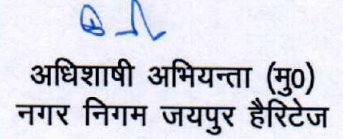 अधिशाषी अभियन्ता (मु0)
नगर निगम जयपुर हैरिटेज